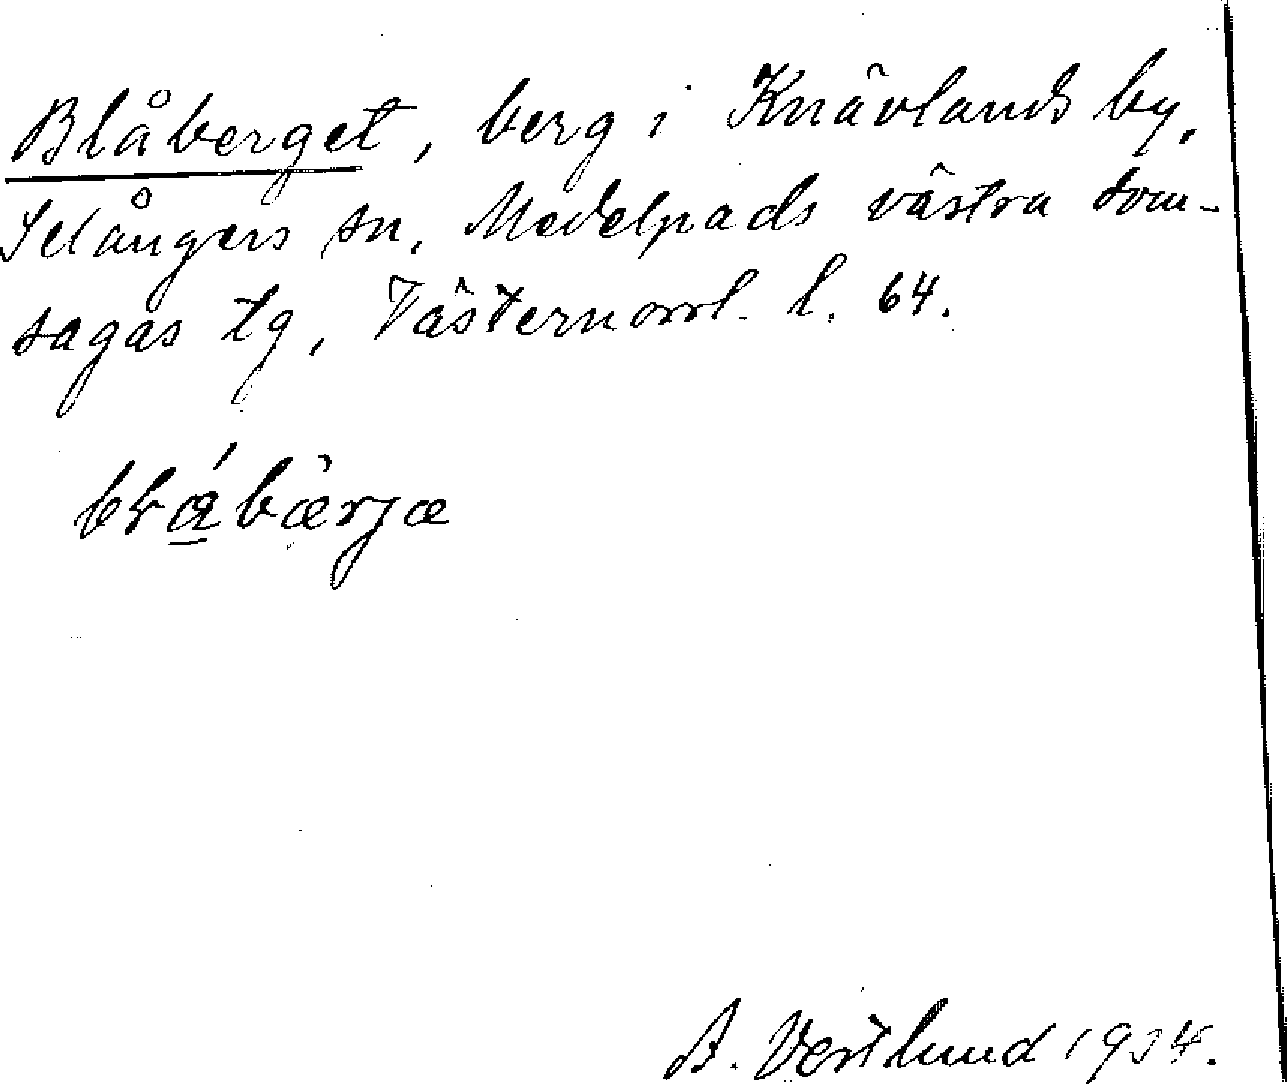 Blåberget, berg i Knävlands by,
Selångers sn, Medelpads västra dom-
sagas tg, Västernorrl. l. 64.
B. Vestlund 1934.